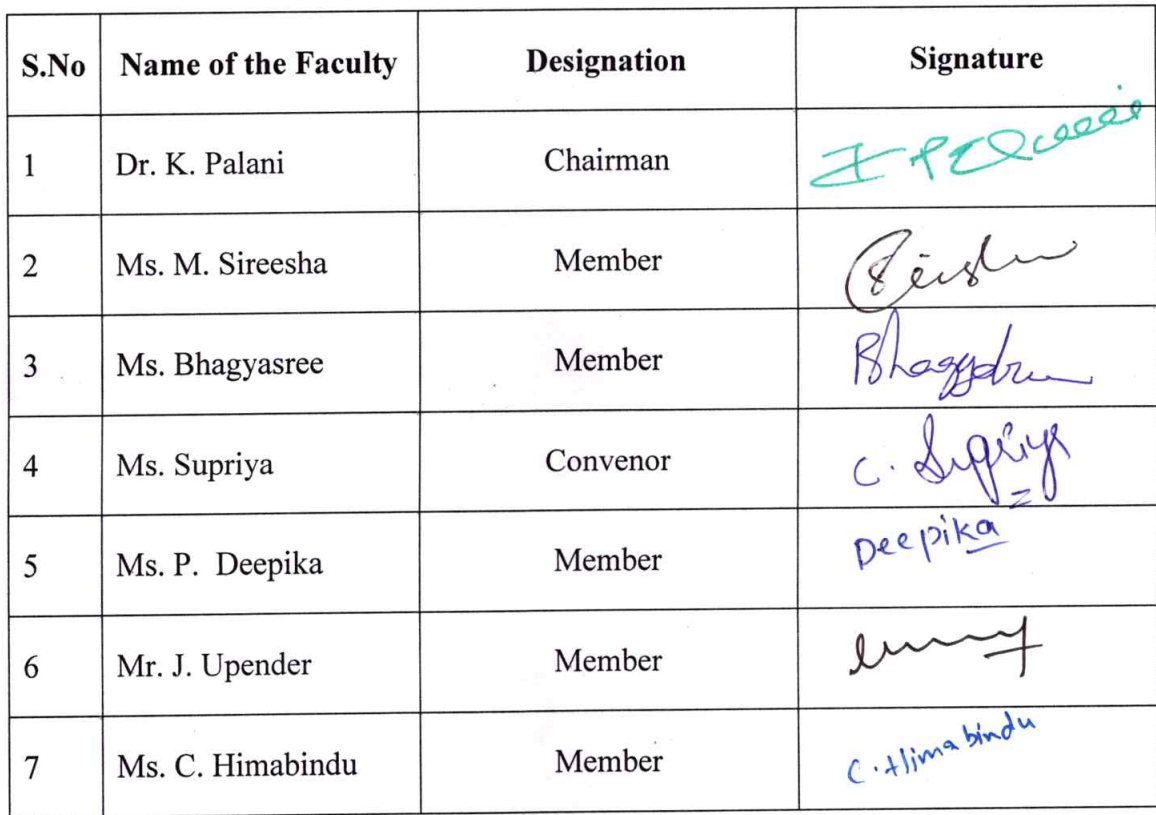 S.No Name of the Faculty Designation Signature
1 Dr. K. Palani Chairman
2 Ms. M. Sireesha Member
3 Ms. Bhagyasree Member Bhagyasree
4 Ms. Supriya Convenor C. Supriya
5 Ms. P. Deepika Member Deepika
6 Mr. J. Upender Member
7 Ms. C. Himabindu Member C. Himabindu